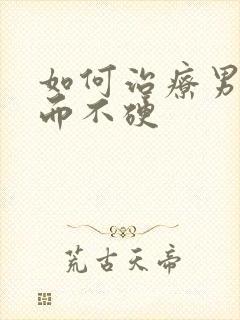 如何治療男
而不硬
荒古天帝